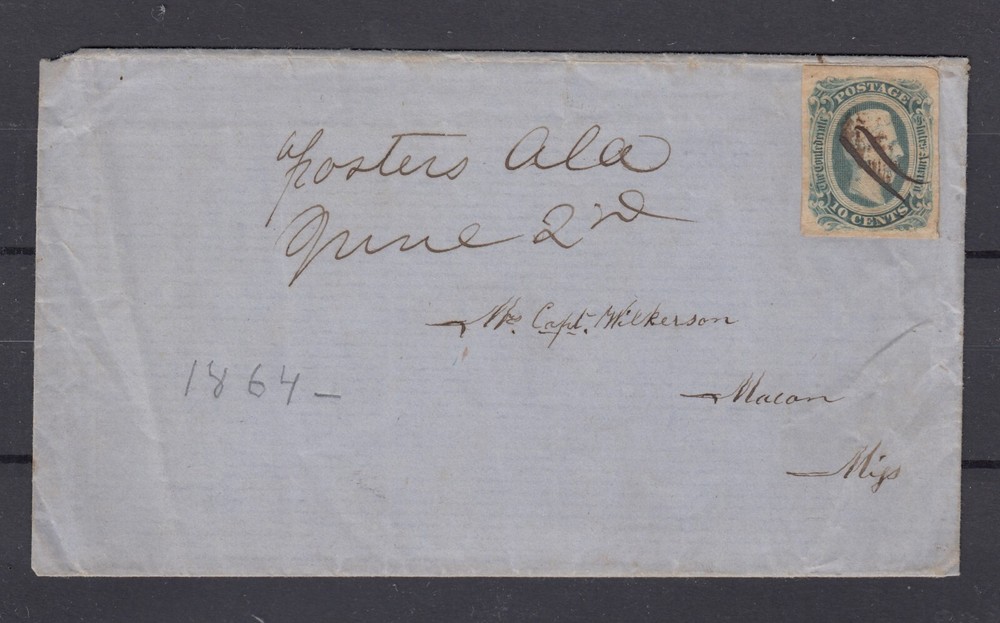 POSTAGE
The Confederate States America
10 CENTS
Fosters Ala
June 2nd
Mrs. Capt. Wilkerson
Macon
Miss
1864 -